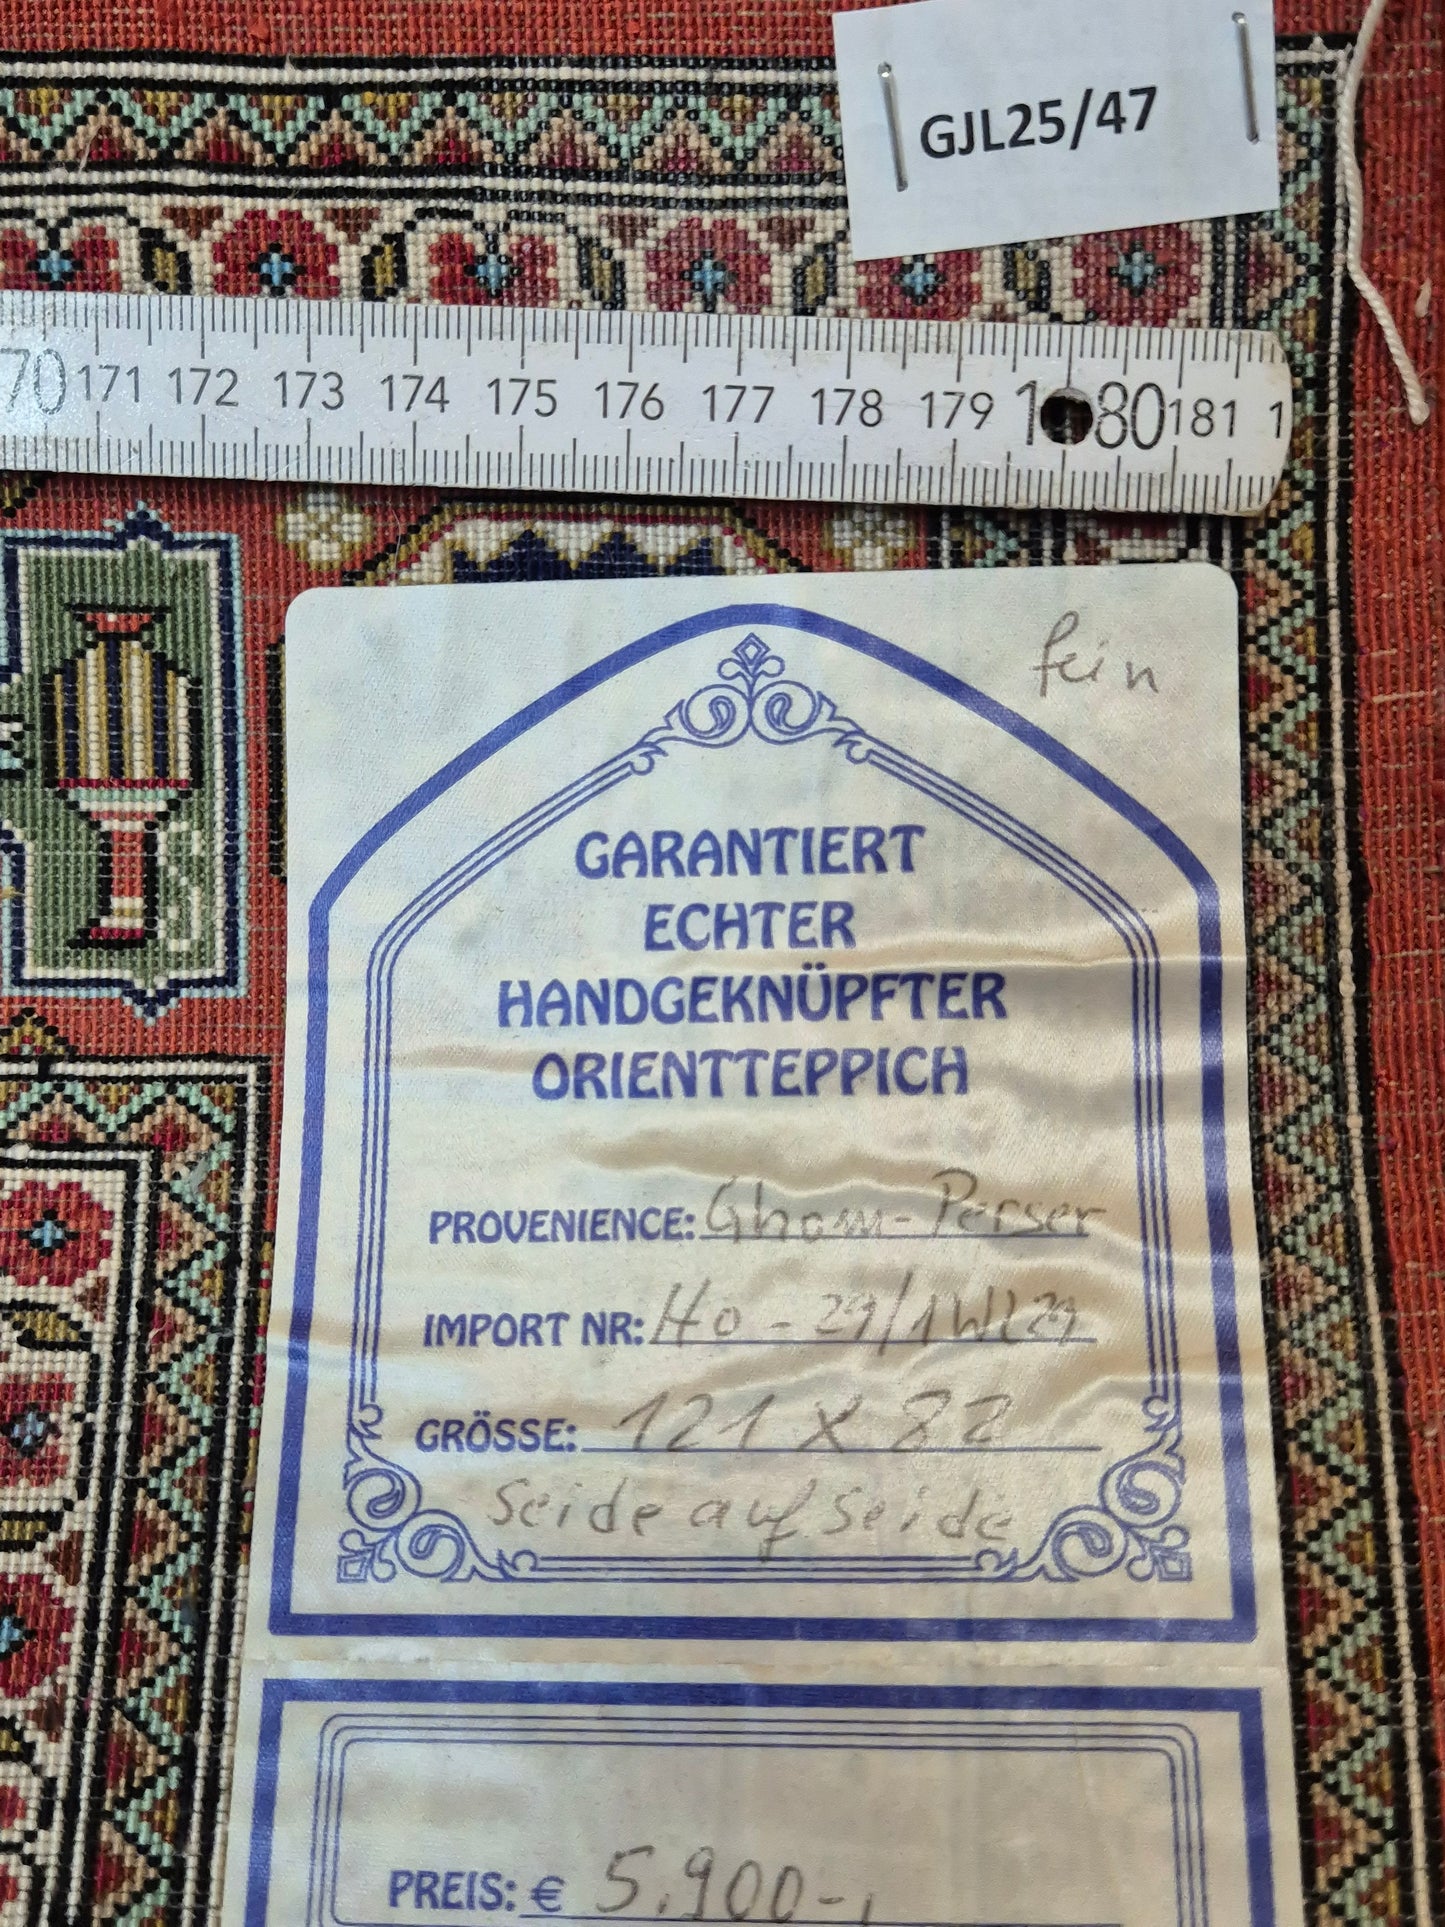 GJL25/47
70 171 172 173 174 175 176 177 178 179 180 181 1
fein
GARANTIERT
ECHTER
HANDGEKNÜPFTER
ORIENTTEPPICH
PROVENIENCE: Ghom-Perser
IMPORT NR: Ho - 29/1WL29
GRÖSSE: 121 x 82
Seide auf Seide
PREIS: € 5.900-,